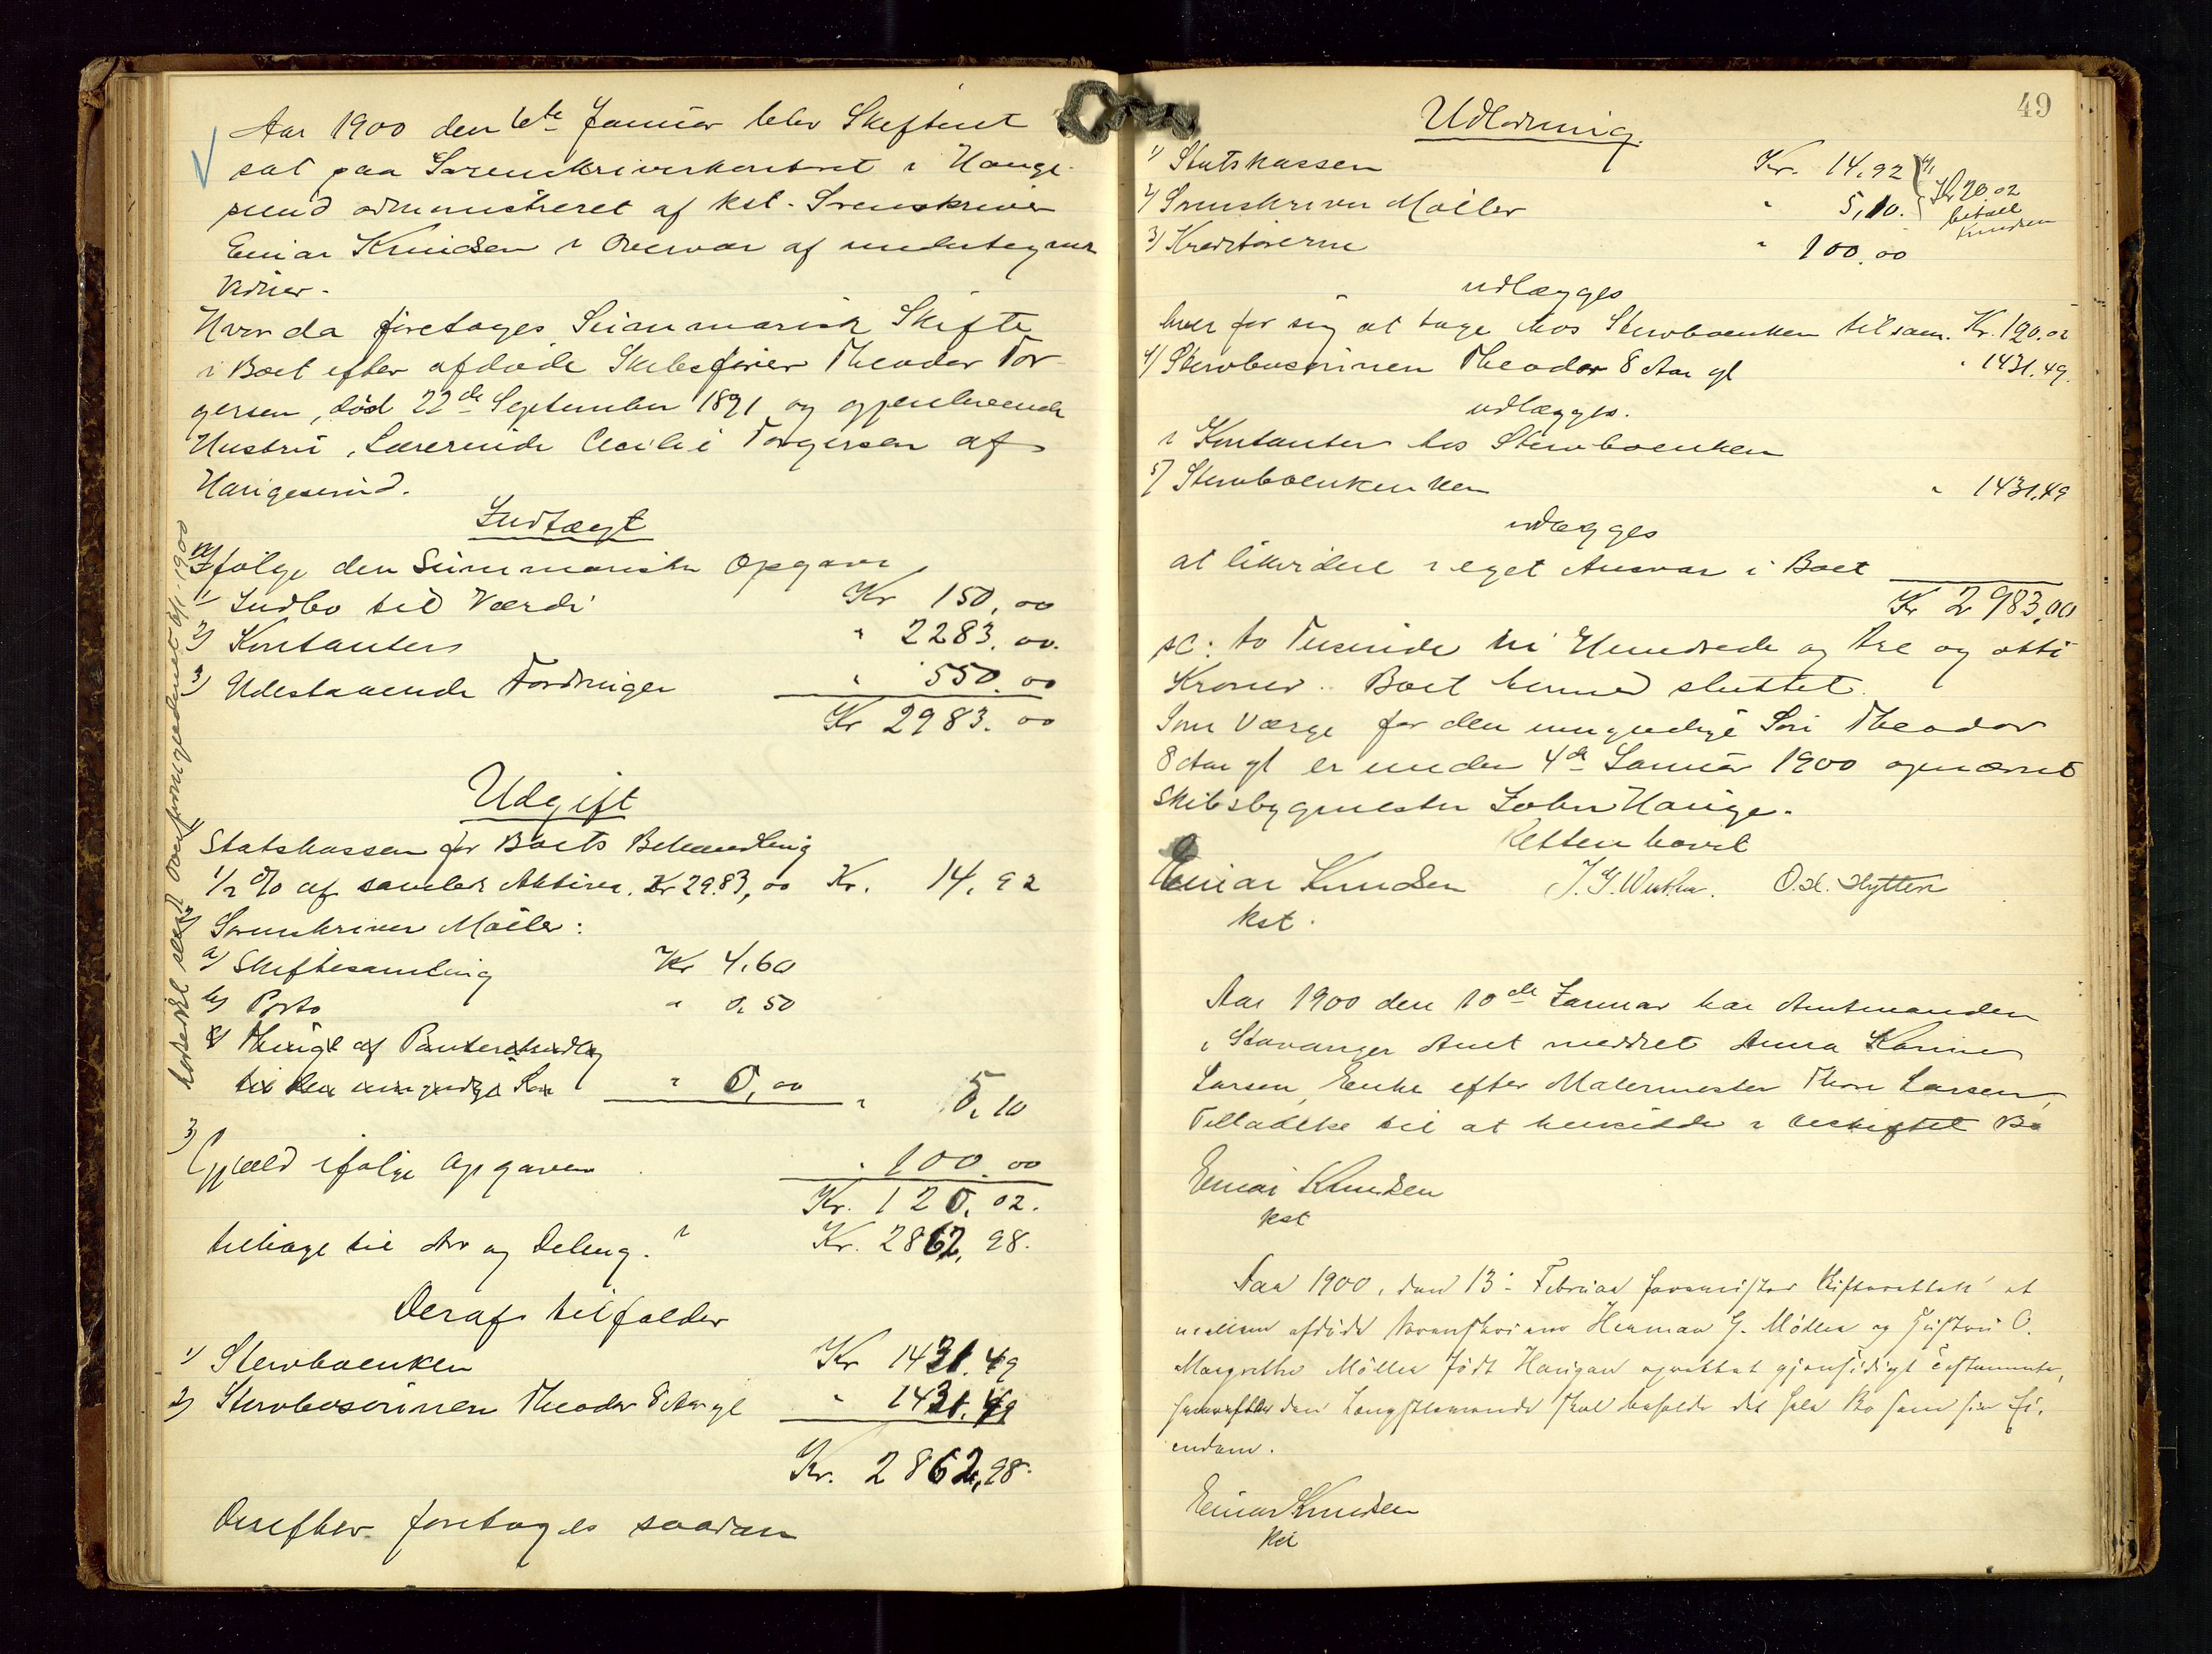 Aar 1900 den 6te Januar blev Skifteret
sat paa Sorenskriverkontoret i Hauge-
sund administreret af kst. Sorenskriver
Einar Knudsen i Overvær af undertegnede
Vidner.
Hvor da foretoges Summarisk Skifte
i Boet efter afdøde Skibsfører Theodor Tor-
gersen, død 22de September 1891 og gjenlevende
Hustru, Lærerinde Cecilie Torgersen af
Haugesund.
Indtægt
Ifølge den Summariske Opgave
1) Indbo til Værdi Kr 150,00
2) Kontanter " 2283.00.
3) Udestaaende Fordringer " 550.00
Kr 2983.00
Udgift
1) Statskassen for Boets Behandling
1/2 % af samlede Aktiva. Kr 2983,00 Kr. 14,92
2) Sorenskriver Møller:
a) Skiftesamling Kr 4,60
b) Porto " 0,50
c) Thingl af
til den umyndige Søn " 0,00 " 5,10
3) Gjæld ifølge Opgaven " 100.00
Kr. 120,02.
tilbage til Arv og Deling. Kr. 2862,98.
Deraf tilfalder
1) Stervboenken Kr 1431.49
2) Stervbosønnen Theodor 8 Aar gl " 1431.49
Kr. 2862,98.
Derefter foretoges saadan
49
Udlodning.
1) Statskassen Kr. 14,92
2) Sorenskriver Møller " 5,10.
Kr 20 02
betalt
Knudsen
3) Kreditorerne " 100.00
udlægges
hver for sig at tage hos Stervboenken tilsam. Kr. 120.02
4) Stervbosønnen Theodor 8 Aar gl " 1431.49.
udlægges.
i Kontanter hos Stervboenken
5) Stervboenken " 1431,49
udlægges
at likvidere i eget Ansvar i Boet
Kr 2983,00
sc: to Tusinde ni Hundrede og tre og otti
Kroner. Boet hermed sluttet.
Som Værge for den umyndige Søn Theodor
8 Aar gl er under 4de Januar 1900 opnævnt
Skibsbygmester John Hauge.
Retten hævet
Einar Knudsen O. H. Hytten
kst.
Aar 1900 den 10de Januar har Amtmanden
i Stavanger Amt meddelt Anna Karine
Larsen, Enke efter Malermester Thore Larsen,
Tilladelse til at hensidde i uskiftet Bo
Einar Knudsen
kst
Aar 1900, den 13: Februar foreviistes Skifteretten et
mellem afdøde Sorenskriver Herman G. Møller og Hustru C.
Margrethe Møller født Haugan oprettet gjensidigt Testamente,
hvorefter den Længstlevende skal beholde det hele Bo som sin Ei-
endom.
Einar Knudsen
kst